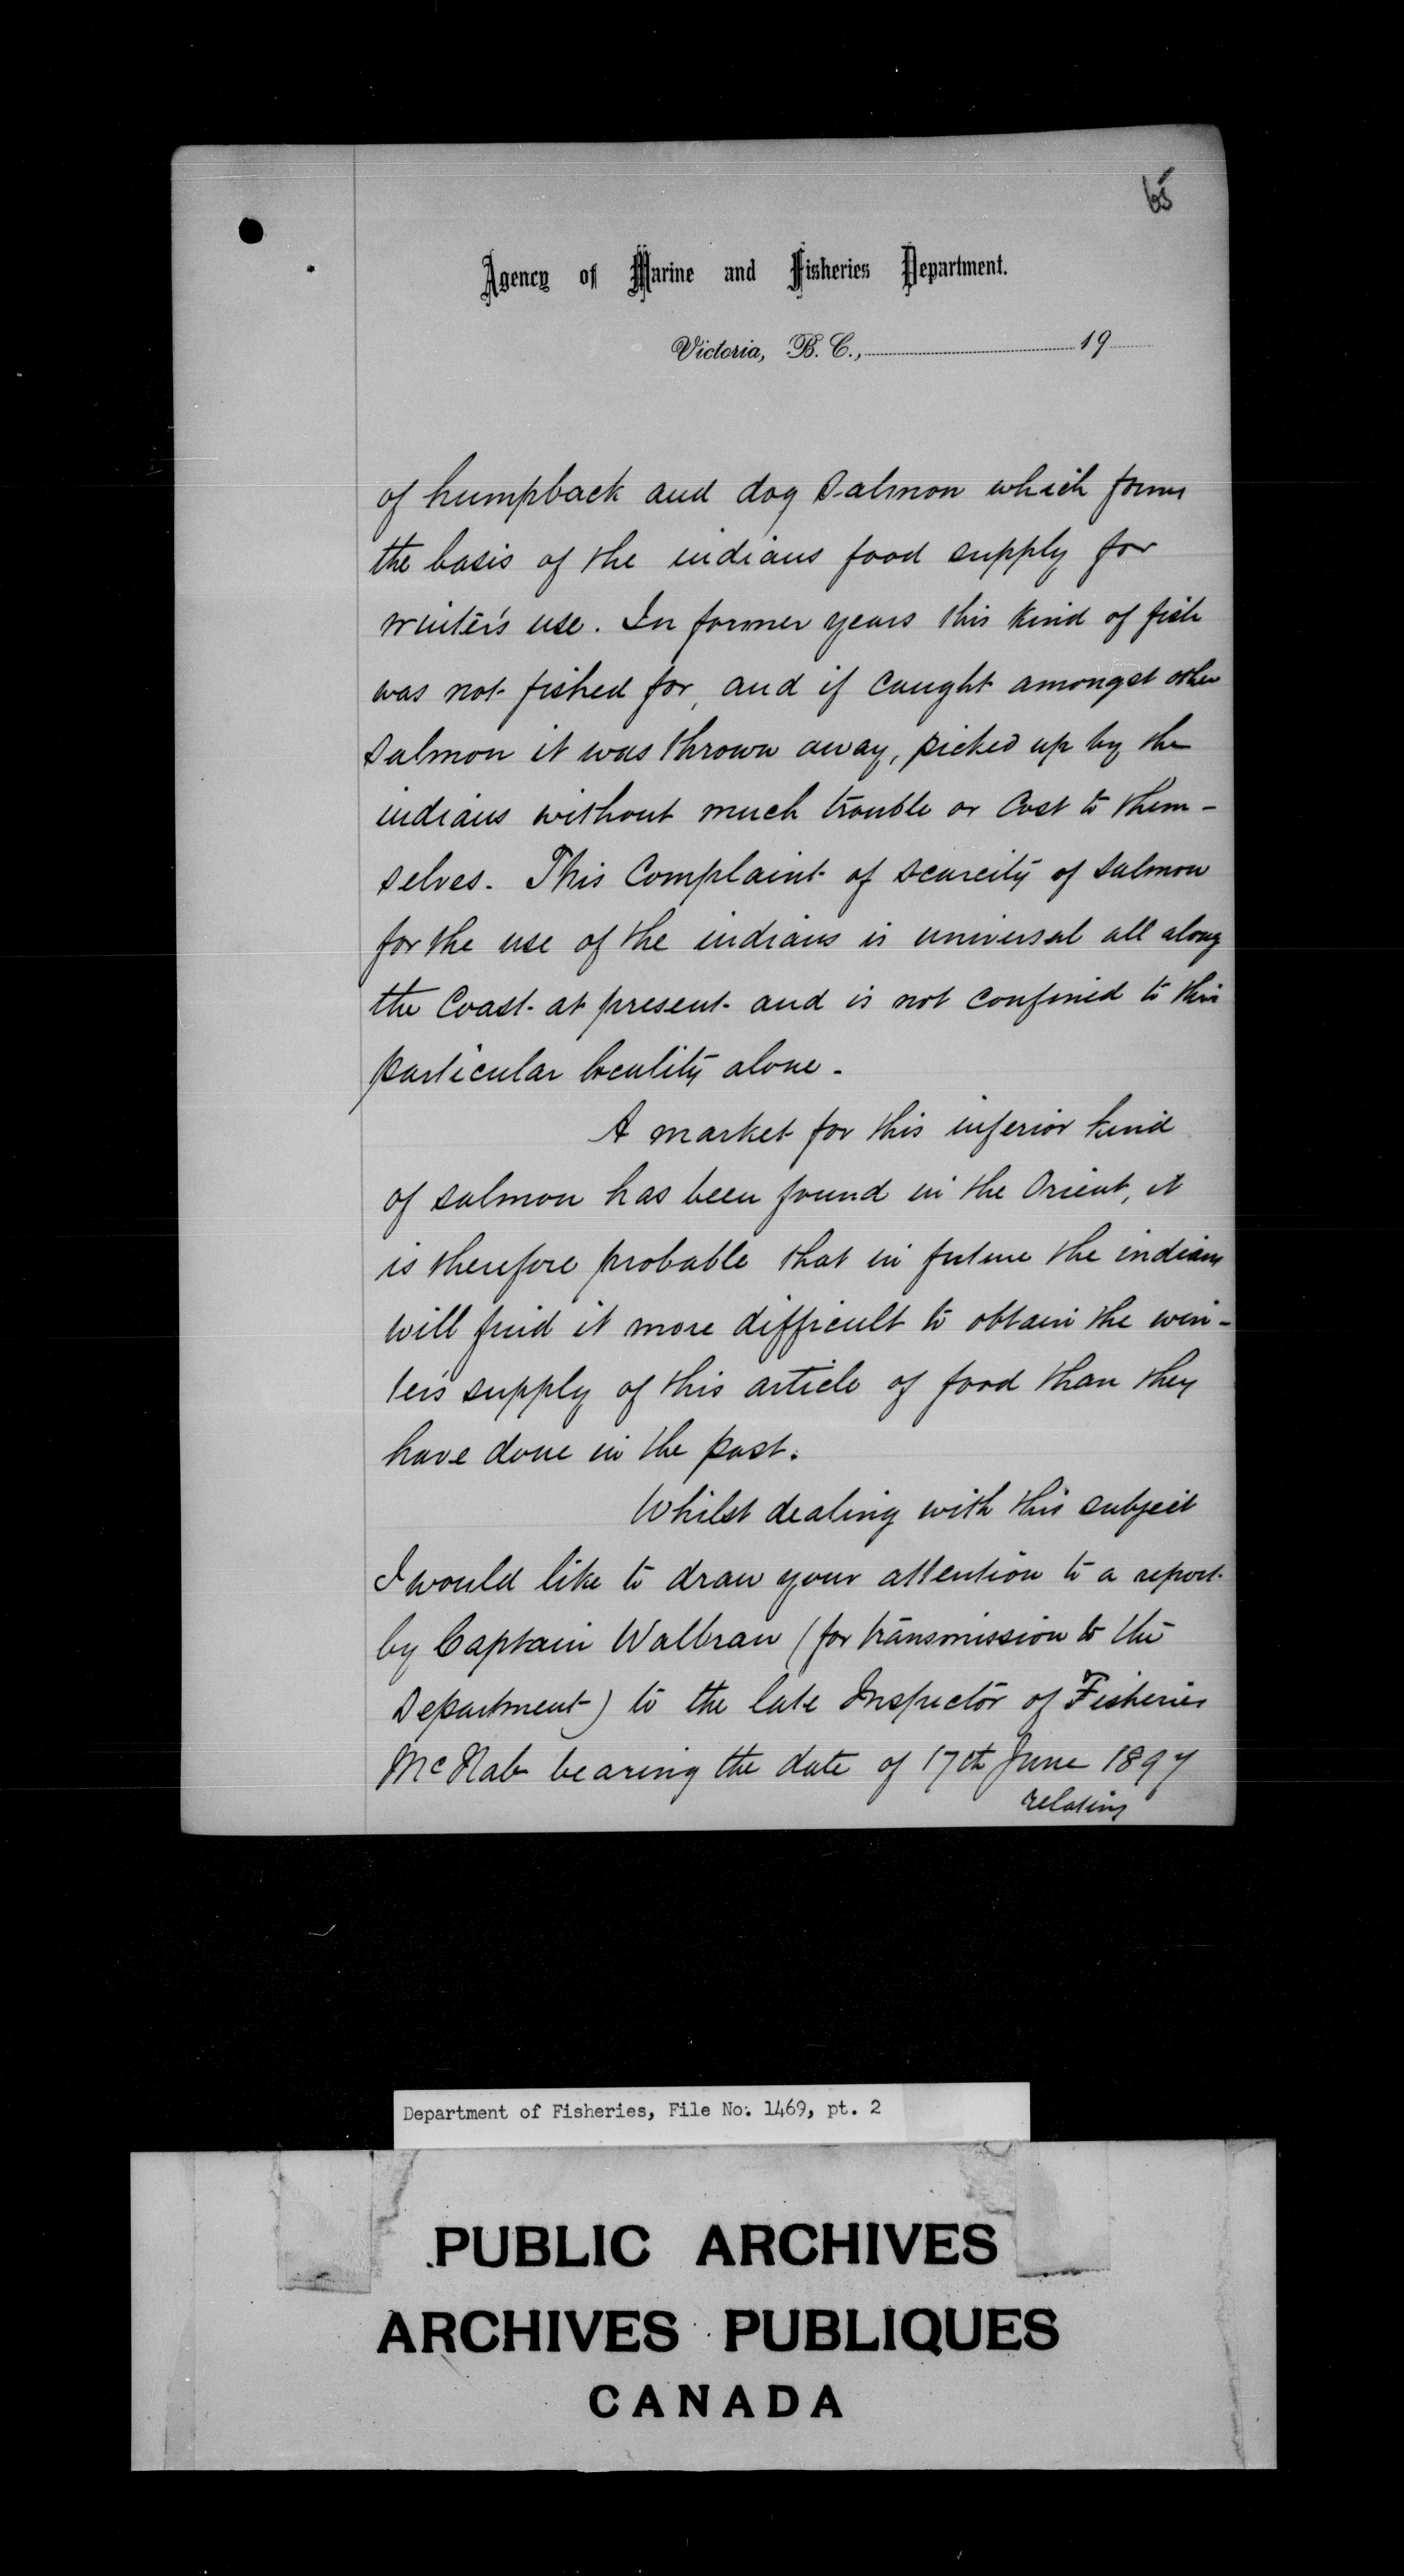 65
Agency of Marine and Fisheries Department.
Victoria, B. C., 19
of humpback and dog salmon which forms
the basis of the indians food supply for
winter's use. In former years this kind of fish
was not fished for, and if caught amongst other
salmon it was thrown away, picked up by the
indians without much trouble or cost to them-
selves. This Complaint of scarcity of salmon
for the use of the indians is universal all along
the Coast at present and is not confined to this
particular locality alone.
A market for this inferior kind
of salmon has been found in the Orient, it
is therefore probable that in future the indians
will find it more difficult to obtain the win-
ter's supply of this article of food than they
have done in the past.
Whilst dealing with this subject
I would like to draw your attention to a report
by Captain Walbran (for transmission to the
Department) to the late Inspector of Fisheries
McNab bearing the date of 17th June 1897
relating
Department of Fisheries, File No. 1469, pt. 2
PUBLIC ARCHIVES
ARCHIVES PUBLIQUES
CANADA